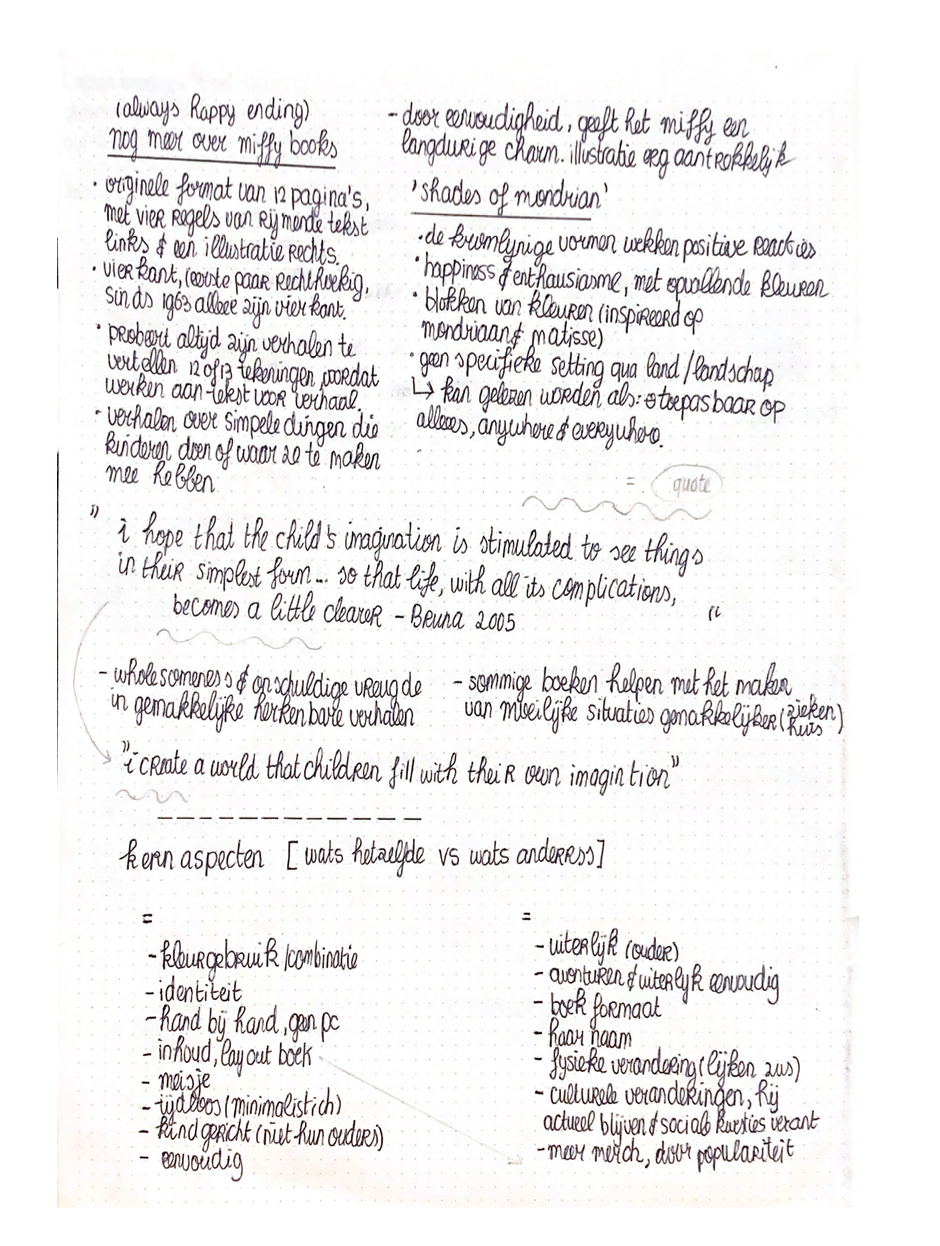 (always happy ending)
nog meer over miffy books
• originele format van 12 pagina's,
met vier regels van rijmende tekst
links & een illustratie rechts.
• vierkant, (eerste paar rechthoekig,
sinds 1963 allee zijn vierkant.
• probeert altijd zijn verhalen te
vertellen 12 of 13 tekeningen, voordat
werken aan tekst voor verhaal.
• verhalen over simpele dingen die
kinderen doen of waar ze te maken
mee hebben
- door eenvoudigheid, geeft het miffy een
langdurige charm. illustratie erg aantrokkelijk
'shades of mondrian'
• de kromlijnige vormen wekken positieve reacties
• happiness & enthausiasme, met opvallende kleuren
• blokken van kleuren (inspireerd op
mondriaan & matisse)
• geen specifieke setting qua land/landschap
↳ kan gelezen worden als: toepasbaar op
allees, anywhere & everywhere.
= quote
" i hope that the child's imagination is stimulated to see things
in their simplest form... so that life, with all its complications,
becomes a little clearer - Bruna 2005 "
- wholesomeness & onschuldige vreugde
in gemakkelijke herkenbare verhalen
- sommige boeken helpen met het maken
van moeilijke situaties gemakkelijker (zieken
huis)
"i create a world that children fill with their own imagintion"
kern aspecten [wats hetzelfde vs wats anderss]
=
- kleurgebruik/combinatie
- identiteit
- hand bij hand, geen pc
- inhoud, layout boek
- meisje
- tijdloos (minimalistich)
- kind gericht (niet hun ouders)
- eenvoudig
=
- uiterlijk (ouder)
- avonturen & uiterlijk eenvoudig
- boek formaat
- haar naam
- fysieke verandering (lijken zus)
- culturele veranderingen, hij
actueel blijven & sociale kwesties verant
- meer merch, door populariteit